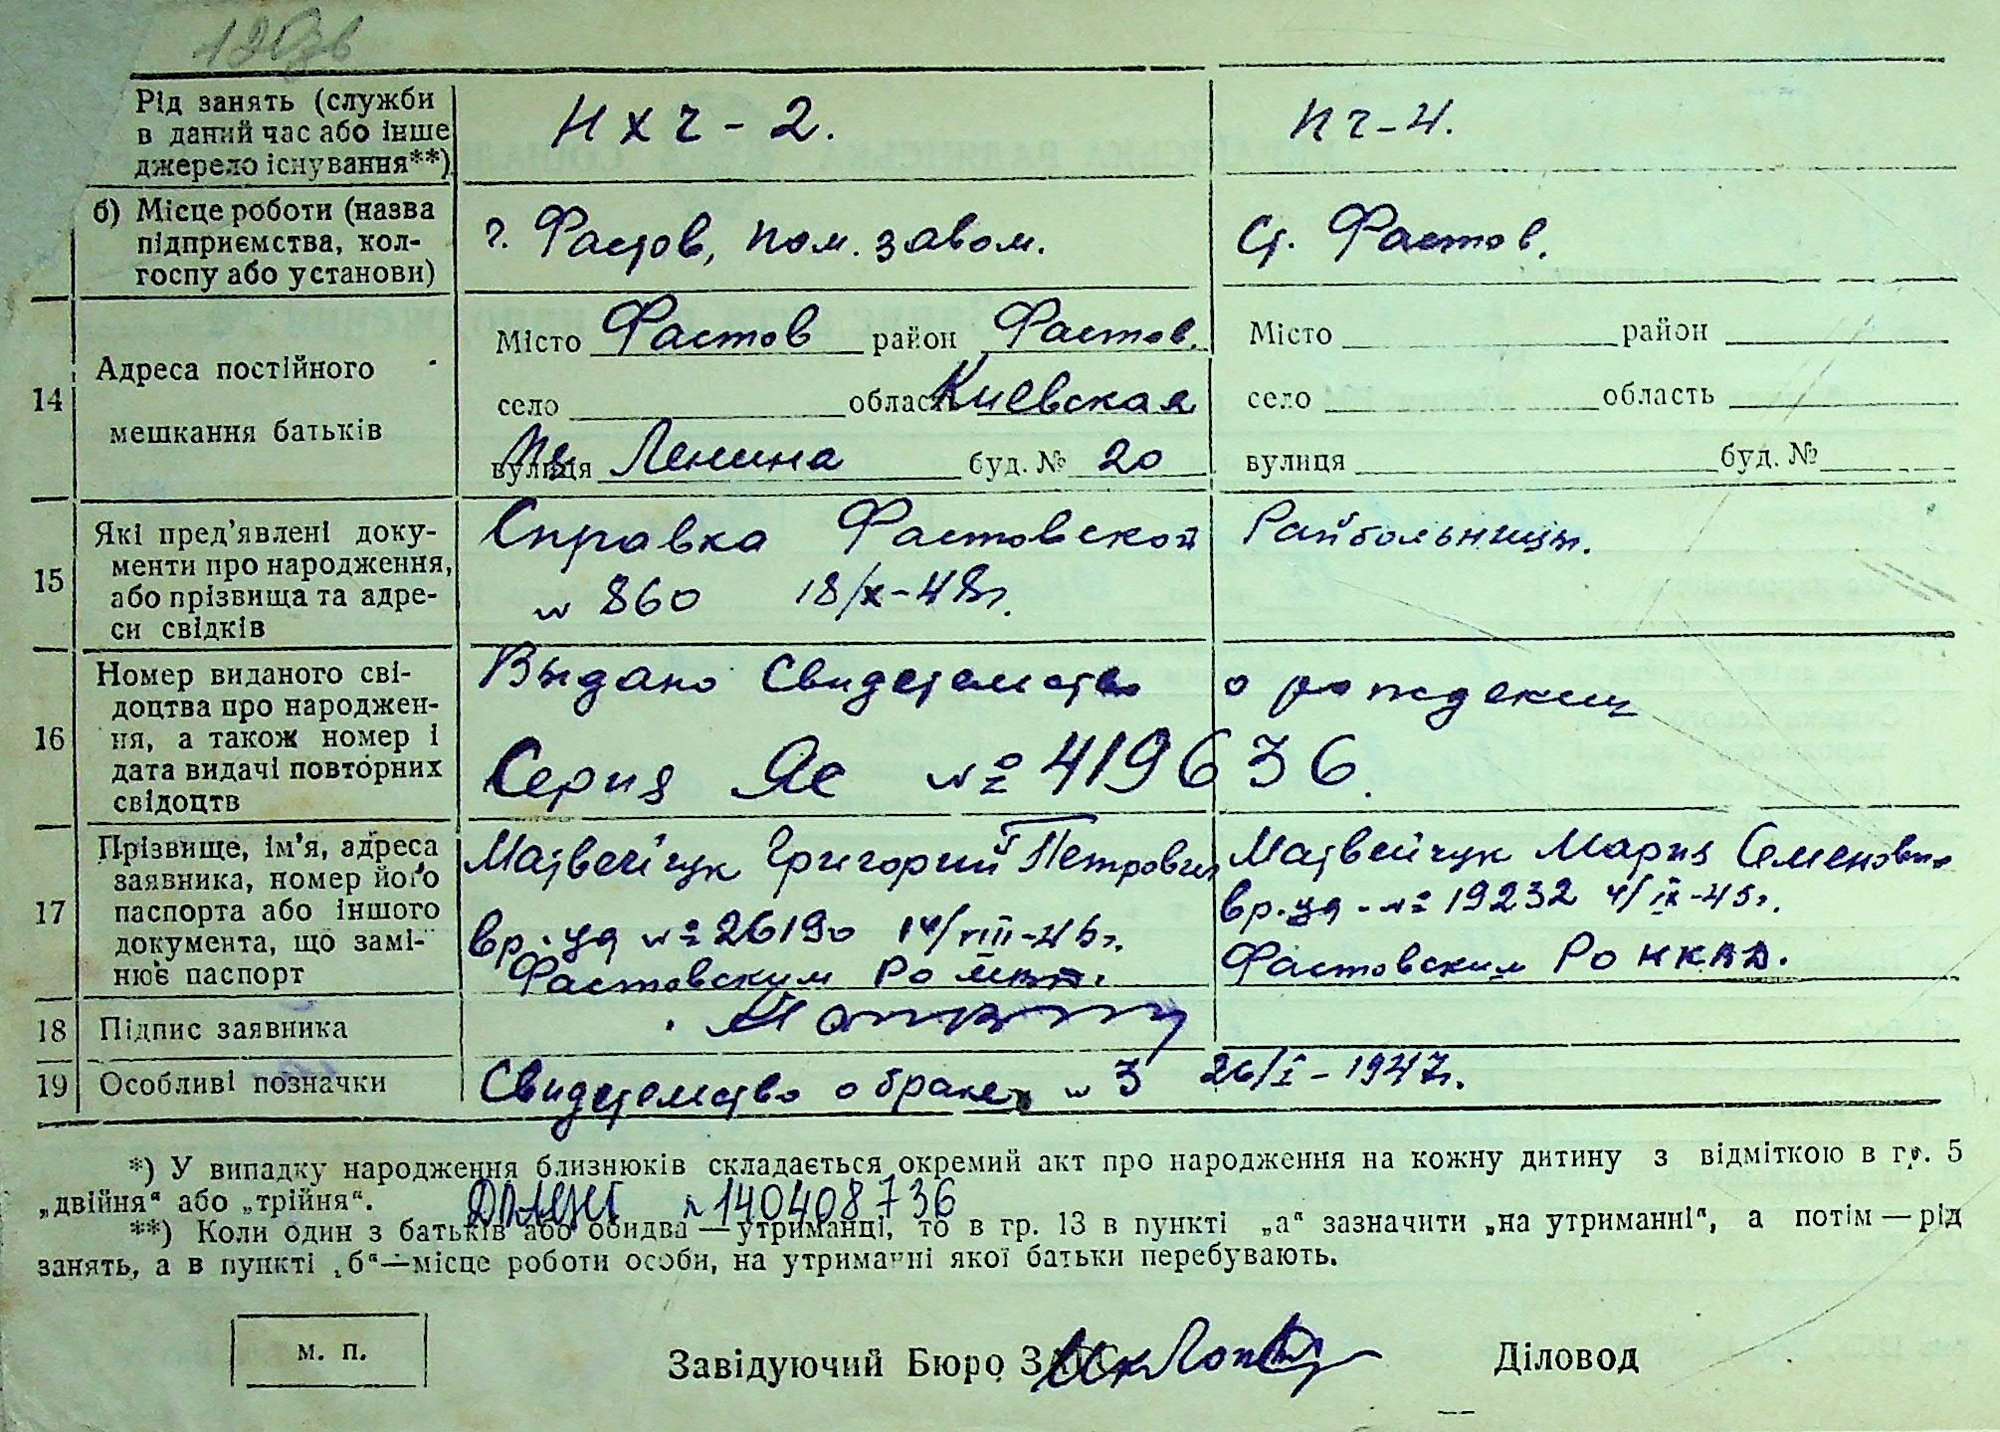 Рід занять (служби в даний час або інше джерело існування**)
НХЧ-2.
ПЧ-4.
б) Місце роботи (назва підприємства, колгоспу або установи)
г. Фастов, пом. завом.
Ст. Фастов.
14 Адреса постійного мешкання батьків
Місто Фастов район Фастов.
село область Киевская
вулиця Ленина буд. № 20
Місто район
село область
вулиця буд. №
15 Які пред'явлені документи про народження, або прізвища та адреси свідків
Справка Фастовской Райбольницы.
№ 860 18/X-48г.
16 Номер виданого свідоцтва про народження, а також номер і дата видачі повторних свідоцтв
Выдано Свидетельство о рождении
Серия ЯЄ № 419636.
17 Прізвище, ім'я, адреса заявника, номер його паспорта або іншого документа, що замінює паспорт
Матвейчук Григорий Петрович
вр. уд № 26190 14/VIII-46г.
Фастовским РО
Матвейчук Мария Семеновна
вр. уд - № 19232 4/IX-45г.
Фастовским РО НКВД.
18 Підпис заявника
19 Особливі позначки
Свидетельство о браке № 3 26/I-1947г.
*) У випадку народження близнюків складається окремий акт про народження на кожну дитину з відміткою в гр. 5
„двійня" або „трійня".
№ 140408736
**) Коли один з батьків або обидва — утриманці, то в гр. 13 в пункті „а" зазначити „на утриманні", а потім — рід
занять, а в пункті „б"—місце роботи особи, на утриманні якої батьки перебувають.
м. п.
Завідуючий Бюро ЗАГС
Діловод